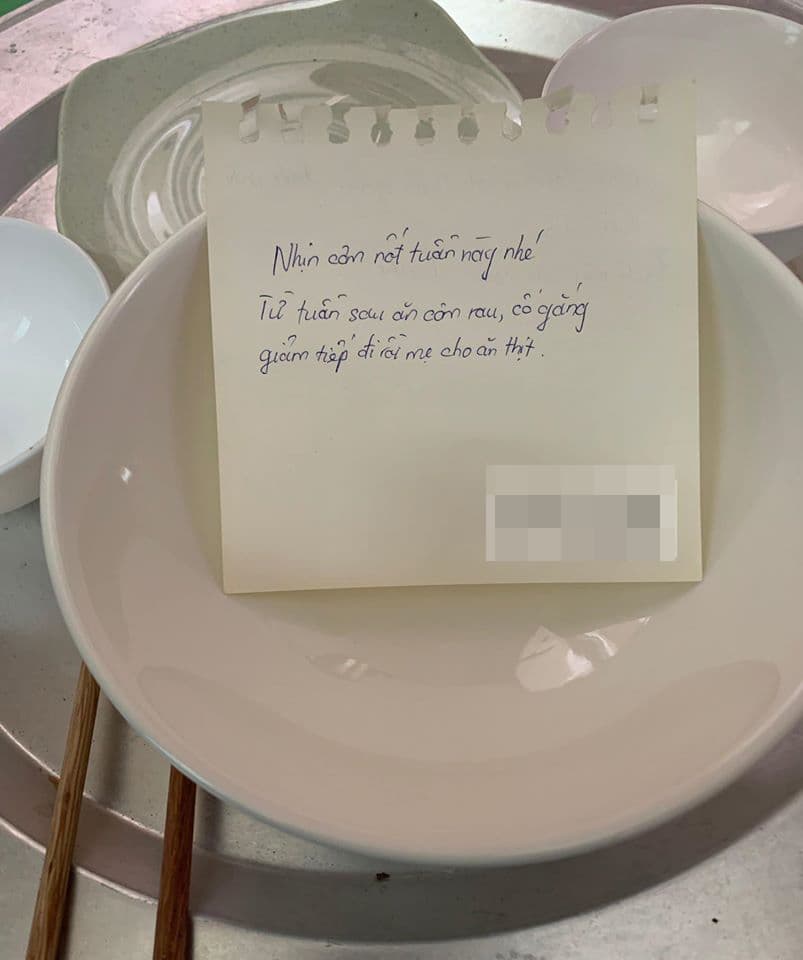 Nhịn cơm nốt tuần này nhé
Từ tuần sau ăn cơm rau, cố gắng
giảm tiếp đi rồi mẹ cho ăn thịt.